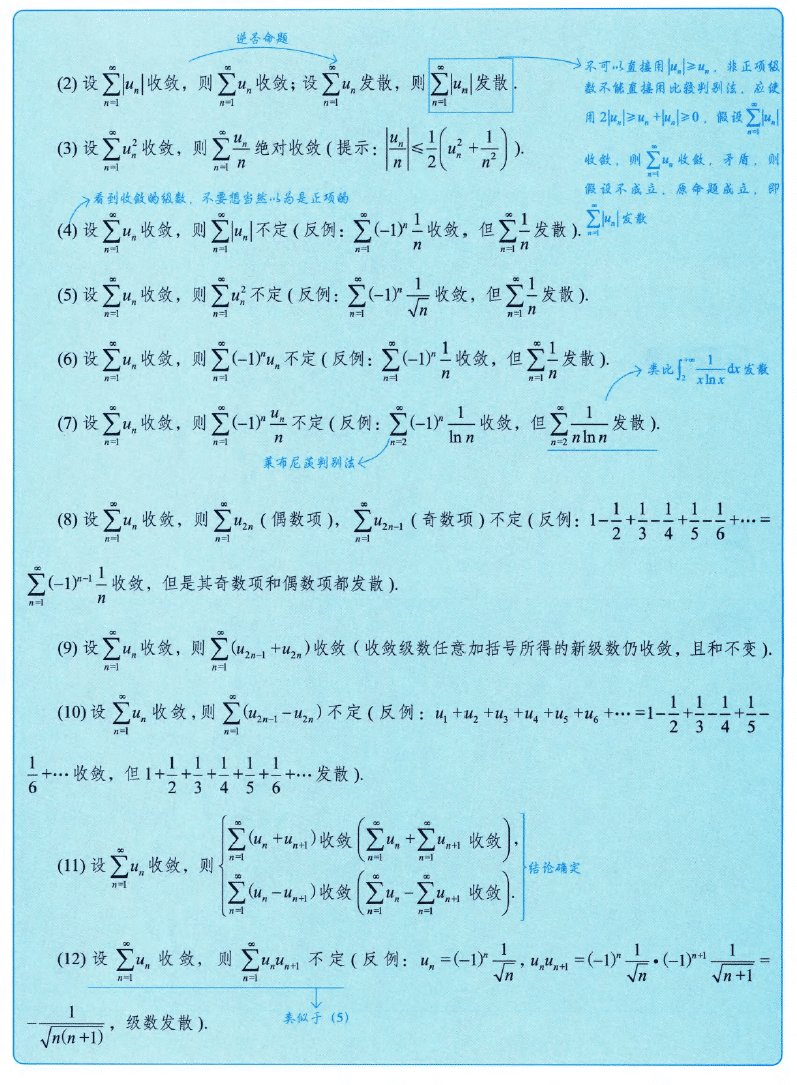 逆否命题
(2) 设 $\sum_{n=1}^{\infty}|u_n|$ 收敛，则 $\sum_{n=1}^{\infty}u_n$ 收敛；设 $\sum_{n=1}^{\infty}u_n$ 发散，则 $\sum_{n=1}^{\infty}|u_n|$ 发散.
不可以直接用 $|u_n|\geq u_n$，非正项级
数不能直接用比较判别法，应使
用 $2|u_n|\geq u_n+|u_n|\geq 0$，假设 $\sum_{n=1}^{\infty}|u_n|$
收敛，则 $\sum_{n=1}^{\infty}u_n$ 收敛，矛盾，则
假设不成立，原命题成立，即
$\sum_{n=1}^{\infty}|u_n|$ 发散
(3) 设 $\sum_{n=1}^{\infty}u_n^2$ 收敛，则 $\sum_{n=1}^{\infty}\frac{u_n}{n}$ 绝对收敛 (提示：$\left|\frac{u_n}{n}\right|\leq\frac{1}{2}\left(u_n^2+\frac{1}{n^2}\right)$).
看到收敛的级数，不要想当然以为是正项的
(4) 设 $\sum_{n=1}^{\infty}u_n$ 收敛，则 $\sum_{n=1}^{\infty}|u_n|$ 不定 (反例：$\sum_{n=1}^{\infty}(-1)^n\frac{1}{n}$ 收敛，但 $\sum_{n=1}^{\infty}\frac{1}{n}$ 发散).
(5) 设 $\sum_{n=1}^{\infty}u_n$ 收敛，则 $\sum_{n=1}^{\infty}u_n^2$ 不定 (反例：$\sum_{n=1}^{\infty}(-1)^n\frac{1}{\sqrt{n}}$ 收敛，但 $\sum_{n=1}^{\infty}\frac{1}{n}$ 发散).
(6) 设 $\sum_{n=1}^{\infty}u_n$ 收敛，则 $\sum_{n=1}^{\infty}(-1)^n u_n$ 不定 (反例：$\sum_{n=1}^{\infty}(-1)^n\frac{1}{n}$ 收敛，但 $\sum_{n=1}^{\infty}\frac{1}{n}$ 发散).
类比 $\int_2^{+\infty}\frac{1}{x\ln x}dx$ 发散
(7) 设 $\sum_{n=1}^{\infty}u_n$ 收敛，则 $\sum_{n=1}^{\infty}(-1)^n\frac{u_n}{n}$ 不定 (反例：$\sum_{n=2}^{\infty}(-1)^n\frac{1}{\ln n}$ 收敛，但 $\sum_{n=2}^{\infty}\frac{1}{n\ln n}$ 发散).
莱布尼茨判别法
(8) 设 $\sum_{n=1}^{\infty}u_n$ 收敛，则 $\sum_{n=1}^{\infty}u_{2n}$ (偶数项)，$\sum_{n=1}^{\infty}u_{2n-1}$ (奇数项) 不定 (反例：$1-\frac{1}{2}+\frac{1}{3}-\frac{1}{4}+\frac{1}{5}-\frac{1}{6}+\cdots=$
$\sum_{n=1}^{\infty}(-1)^{n-1}\frac{1}{n}$ 收敛，但是其奇数项和偶数项都发散).
(9) 设 $\sum_{n=1}^{\infty}u_n$ 收敛，则 $\sum_{n=1}^{\infty}(u_{2n-1}+u_{2n})$ 收敛 (收敛级数任意加括号所得的新级数仍收敛，且和不变).
(10) 设 $\sum_{n=1}^{\infty}u_n$ 收敛，则 $\sum_{n=1}^{\infty}(u_{2n-1}-u_{2n})$ 不定 (反例：$u_1+u_2+u_3+u_4+u_5+u_6+\cdots=1-\frac{1}{2}+\frac{1}{3}-\frac{1}{4}+\frac{1}{5}-$
$\frac{1}{6}+\cdots$ 收敛，但 $1+\frac{1}{2}+\frac{1}{3}+\frac{1}{4}+\frac{1}{5}+\frac{1}{6}+\cdots$ 发散).
(11) 设 $\sum_{n=1}^{\infty}u_n$ 收敛，则
$\sum_{n=1}^{\infty}(u_n+u_{n+1})$ 收敛 $\left(\sum_{n=1}^{\infty}u_n+\sum_{n=1}^{\infty}u_{n+1}\ 收敛\right)$,
$\sum_{n=1}^{\infty}(u_n-u_{n+1})$ 收敛 $\left(\sum_{n=1}^{\infty}u_n-\sum_{n=1}^{\infty}u_{n+1}\ 收敛\right)$.
结论确定
(12) 设 $\sum_{n=1}^{\infty}u_n$ 收敛，则 $\sum_{n=1}^{\infty}u_nu_{n+1}$ 不定 (反例：$u_n=(-1)^n\frac{1}{\sqrt{n}}$, $u_nu_{n+1}=(-1)^n\frac{1}{\sqrt{n}}\cdot(-1)^{n+1}\frac{1}{\sqrt{n+1}}=$
$-\frac{1}{\sqrt{n(n+1)}}$，级数发散).
类似于 (5)